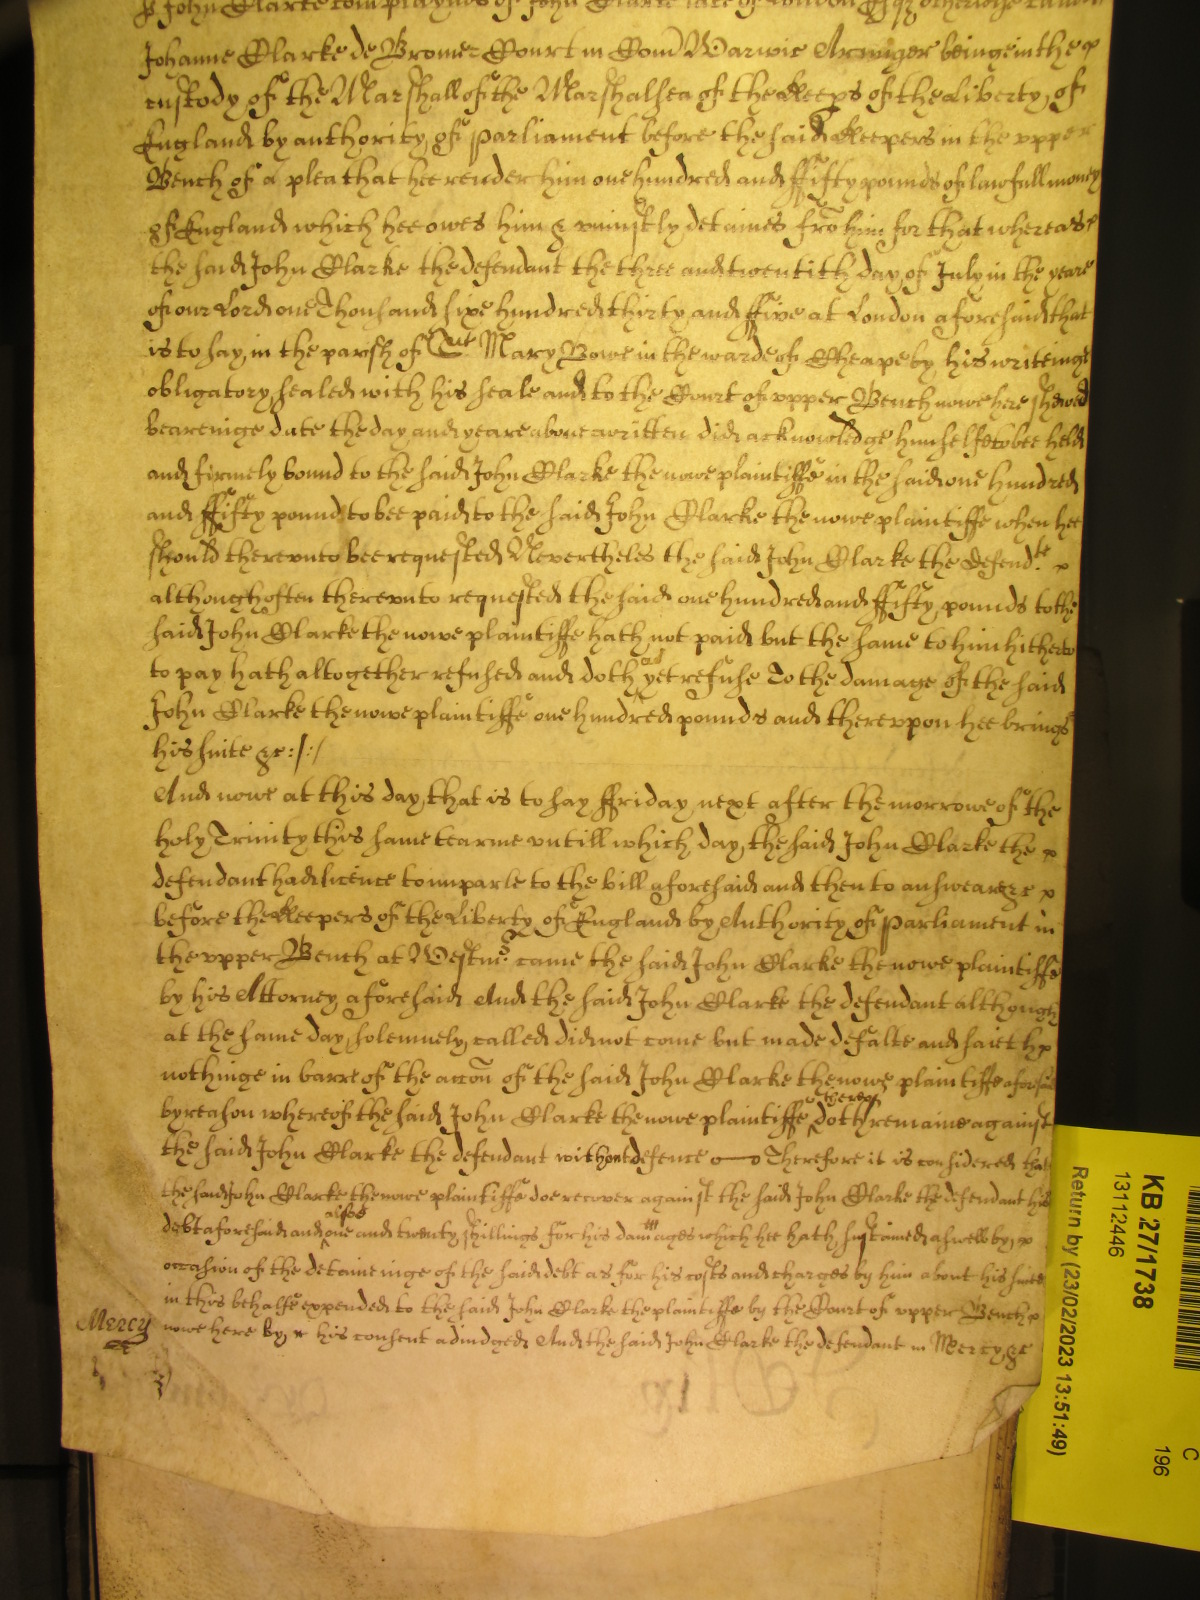 John Clarke complaynes of John Clarke late of London Esq otherwise called
Johanne Clarke de Bromer Court in Com Warwic Armiger beinge in the
custody of the Marshall of the Marshalsea of the Keeps of the Liberty of
England by authority of Parliament before the said Keepers in the upper
Bench of a plea that hee render him one hundred and ffifty pounds of lawfull money
of England which hee owes him & uniustly detaines fro him for that whereas
the said John Clarke the defendant the three and twentith day of July in the yeare
of our Lord one Thousand sixe hundred thirty and ffive at London aforesaid that
is to say in the parish of Mary Bowe in the warde of Cheape by his writeinge
obligatory sealed with his seale and to the Court of upper Bench nowe here shewed
beareinge date the day and yeare above written did acknowledge himselfe to bee held
and firmely bound to the said John Clarke the nowe plaintiffe in the said one hundred
and ffifty pound to bee paid to the said John Clarke the nowe plaintiffe when hee
should thereunto bee requested Nevertheles the said John Clarke the defendt
although often thereunto requested the said one hundred and ffifty pounds to the
said John Clarke the nowe plaintiffe hath not paid but the same to him hitherto
to pay hath altogether refused and doth as yet refuse To the damage of the said
John Clarke the nowe plaintiffe one hundred pounds and thereupon hee brings
his suite &c:/:/
And nowe at this day that is to say ffriday next after the morrowe of the
holy Trinity this same tearme untill which day the said John Clarke the
defendant had licence to imparle to the bill aforesaid and then to answeare &c
before the Keepers of the Liberty of England by Authority of Parliament in
the upper Bench at Westmr came the said John Clarke the nowe plaintiffe
by his Attorney aforesaid And the said John Clarke the defendant although
at the same day solemnely called did not come but made defalte and saieth
nothinge in barre of the accon of the said John Clarke the nowe plaintiffe aforesaid
by reason whereof the said John Clarke the nowe plaintiffe thereof doth remaine against
the said John Clarke the defendant without defence Therefore it is considered that
the said John Clarke the nowe plaintiffe doe recover against the said John Clarke the defendant his
debt aforesaid and alsoe one and twenty shillings for his damages which hee hath sustained aswell by
occasion of the detaineinge of the said debt as for his costs and charges by him about his suite
in this behalfe expended to the said John Clarke the plaintiffe by the Court of upper Bench
Mercy nowe here by his consent adiudged And the said John Clarke the defendant in Mercy &c
KB 27/1738
13112446
Return by (23/02/2023 13:51:49)
C
196